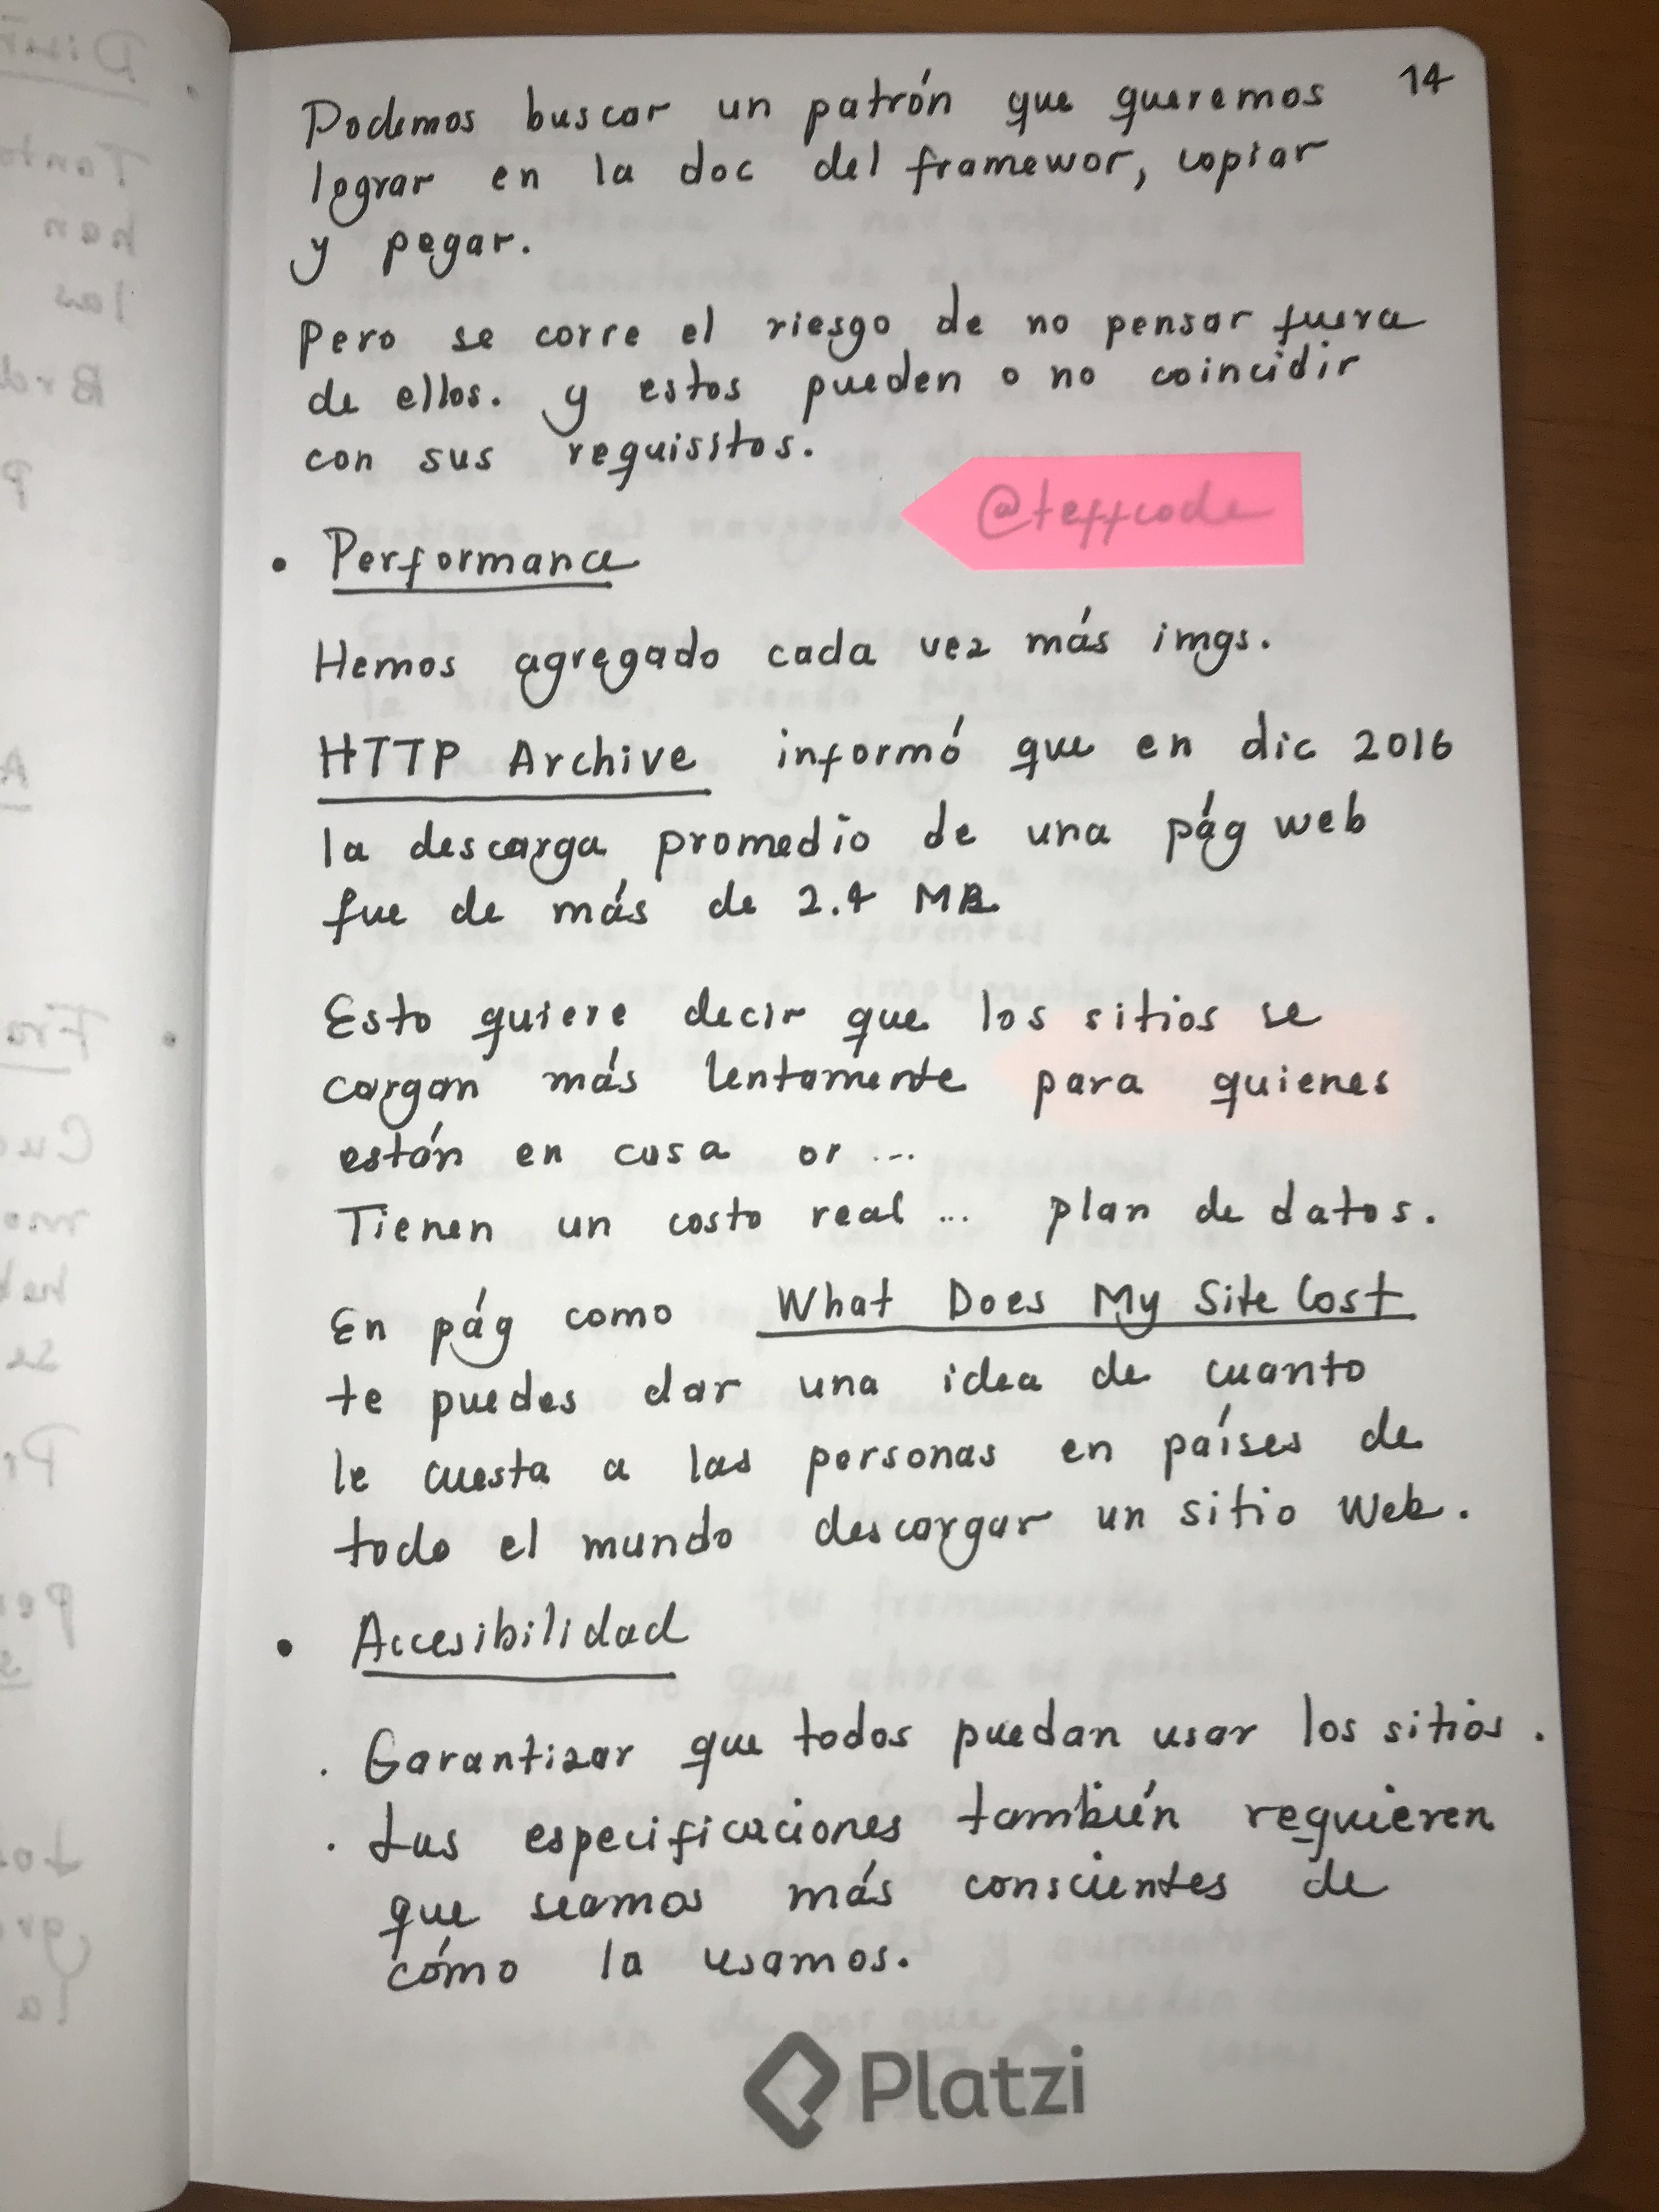 14
Podemos buscar un patrón que queremos
lograr en la doc del framewor, copiar
y pegar.
Pero se corre el riesgo de no pensar fuera
de ellos. y estos pueden o no coincidir
con sus requisitos.
@teffcode
• Performance
Hemos agregado cada vez más imgs.
HTTP Archive informó que en dic 2016
la descarga promedio de una pág web
fue de más de 2.4 MB
Esto quiere decir que los sitios se
cargan más lentamente para quienes
están en casa or ...
Tienen un costo real ... plan de datos.
En pág como What Does My Site Cost
te puedes dar una idea de cuanto
le cuesta a las personas en países de
todo el mundo descargar un sitio Web.
• Accesibilidad
. Garantizar que todos puedan usar los sitios.
. Las especificaciones también requieren
que seamos más conscientes de
cómo la usamos.
Platzi